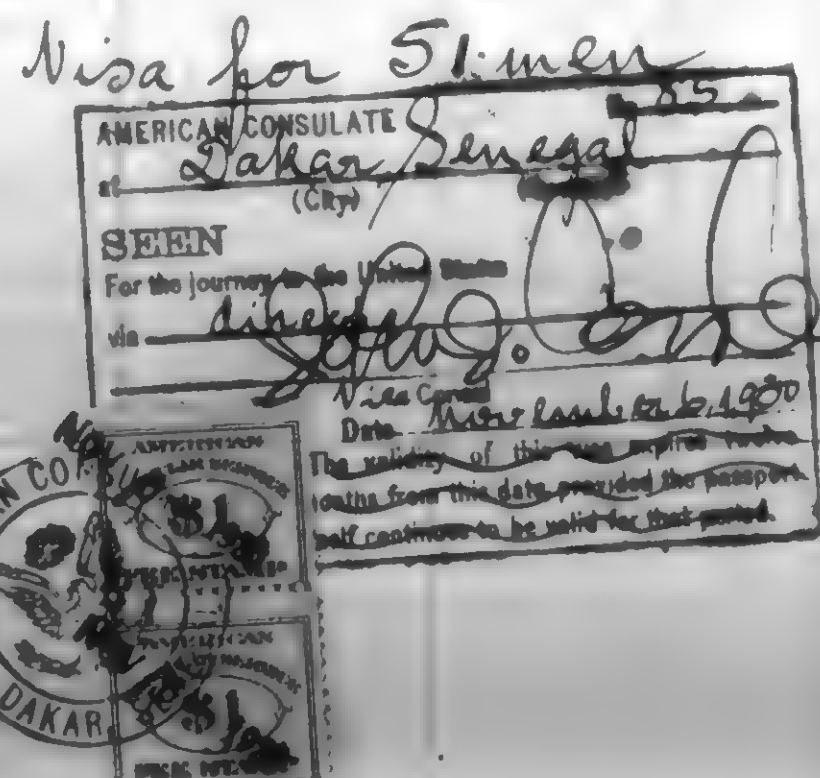 Visa for 51 men
85
AMERICAN CONSULATE
at Dakar Senegal
(City)
SEEN
For the journey to the United States
via direct
Vice Consul
Date November 6, 1930
The validity of this visa expires twelve
months from this date provided the passport
self continues to be valid for that period.
AMERICAN
$1
AMERICAN
$1
DAKAR